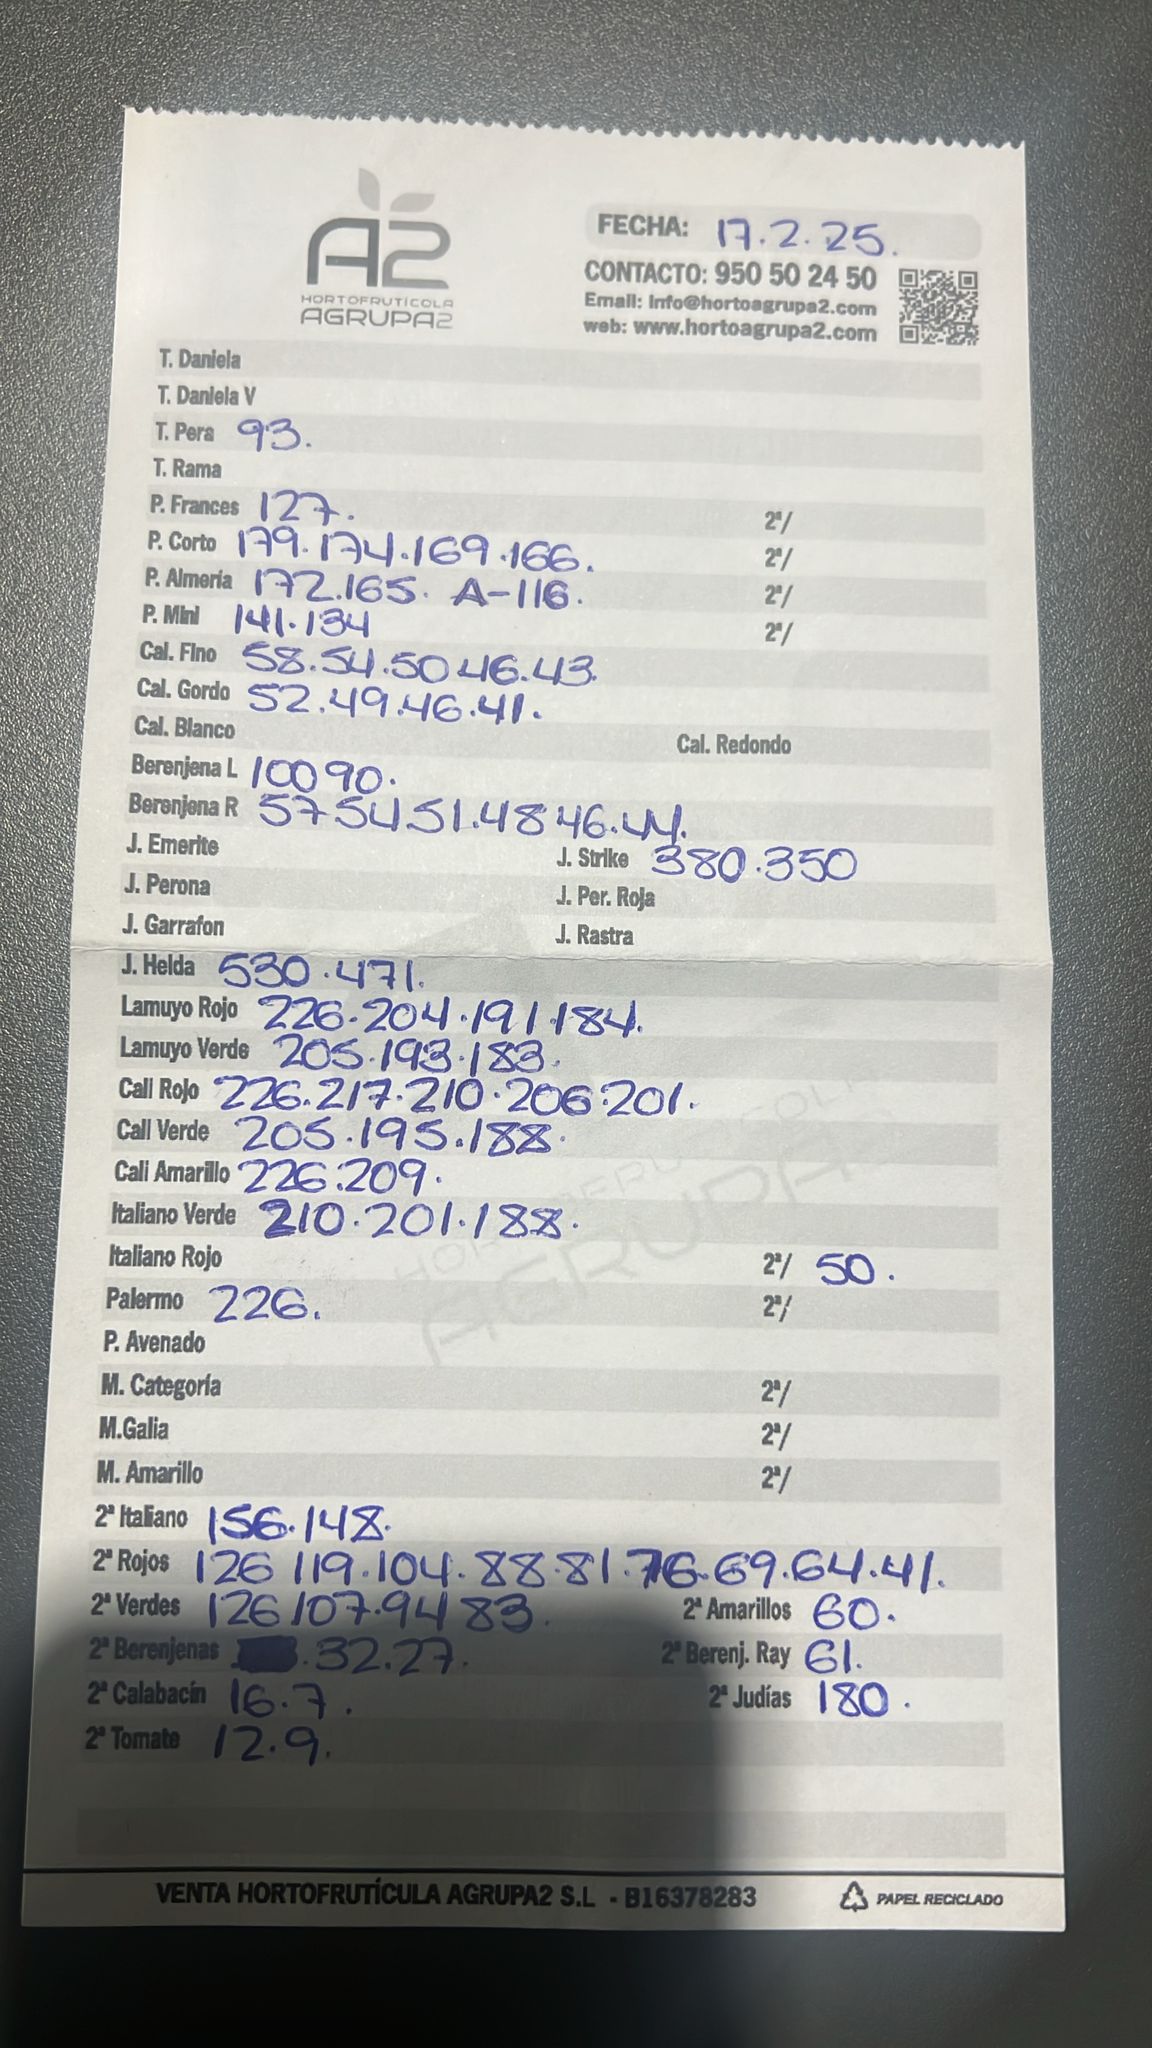 A2
HORTOFRUTÍCOLA
AGRUPA2
FECHA: 17.2.25.
CONTACTO: 950 50 24 50
Email: Info@hortoagrupa2.com
web: www.hortoagrupa2.com
T. Daniela
T. Daniela V
T. Pera 93.
T. Rama
P. Frances 127. 2ª/
P. Corto 179.174.169.166. 2ª/
P. Almería 172.165. A-116. 2ª/
P. Mini 141.134 2ª/
Cal. Fino 58.54.50 46.43.
Cal. Gordo 52.49.46.41.
Cal. Blanco Cal. Redondo
Berenjena L 100 90.
Berenjena R 57 54 51.48 46.44.
J. Emerite J. Strike 380.350
J. Perona J. Per. Roja
J. Garrafon J. Rastra
J. Helda 530.471.
Lamuyo Rojo 226.204.191.184.
Lamuyo Verde 205.193.183.
Cali Rojo 226.217.210.206.201.
Cali Verde 205.195.188.
Cali Amarillo 226.209.
Italiano Verde 210.201.188.
Italiano Rojo 2ª/ 50.
Palermo 226. 2ª/
P. Avenado
M. Categoría 2ª/
M.Galia 2ª/
M. Amarillo 2ª/
2ª Italiano 156.148.
2ª Rojos 126 119.104.88.81.76.69.64.41.
2ª Verdes 126 107.94 83. 2ª Amarillos 60.
2ª Berenjenas .32.27. 2ª Berenj. Ray 61.
2ª Calabacín 16.7. 2ª Judías 180.
2ª Tomate 12.9.
VENTA HORTOFRUTÍCULA AGRUPA2 S.L - B16378283 PAPEL RECICLADO